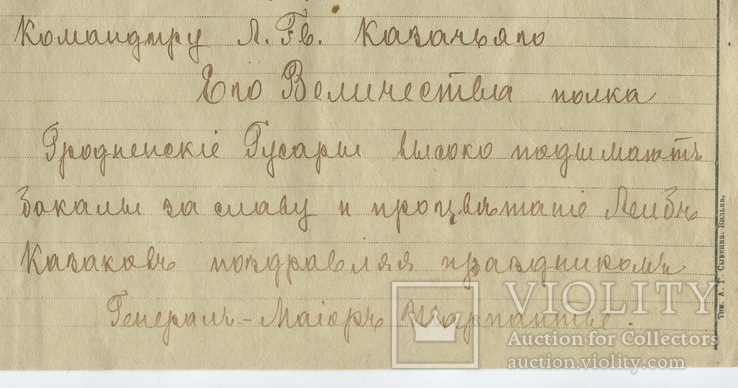 Командиру Л. Гв. Казачьяго
Его Величества полка
Гродненскіе Гусары высоко подымаютъ
бокалы за славу и процвѣтаніе Лейбъ
Казаковъ поздравляя праздникомъ
Генералъ-Маіоръ Шарпантье.
Тип. А. Г. Сыркина, Вильна.
VIOLITY
Auction for Collectors
auction.violity.com